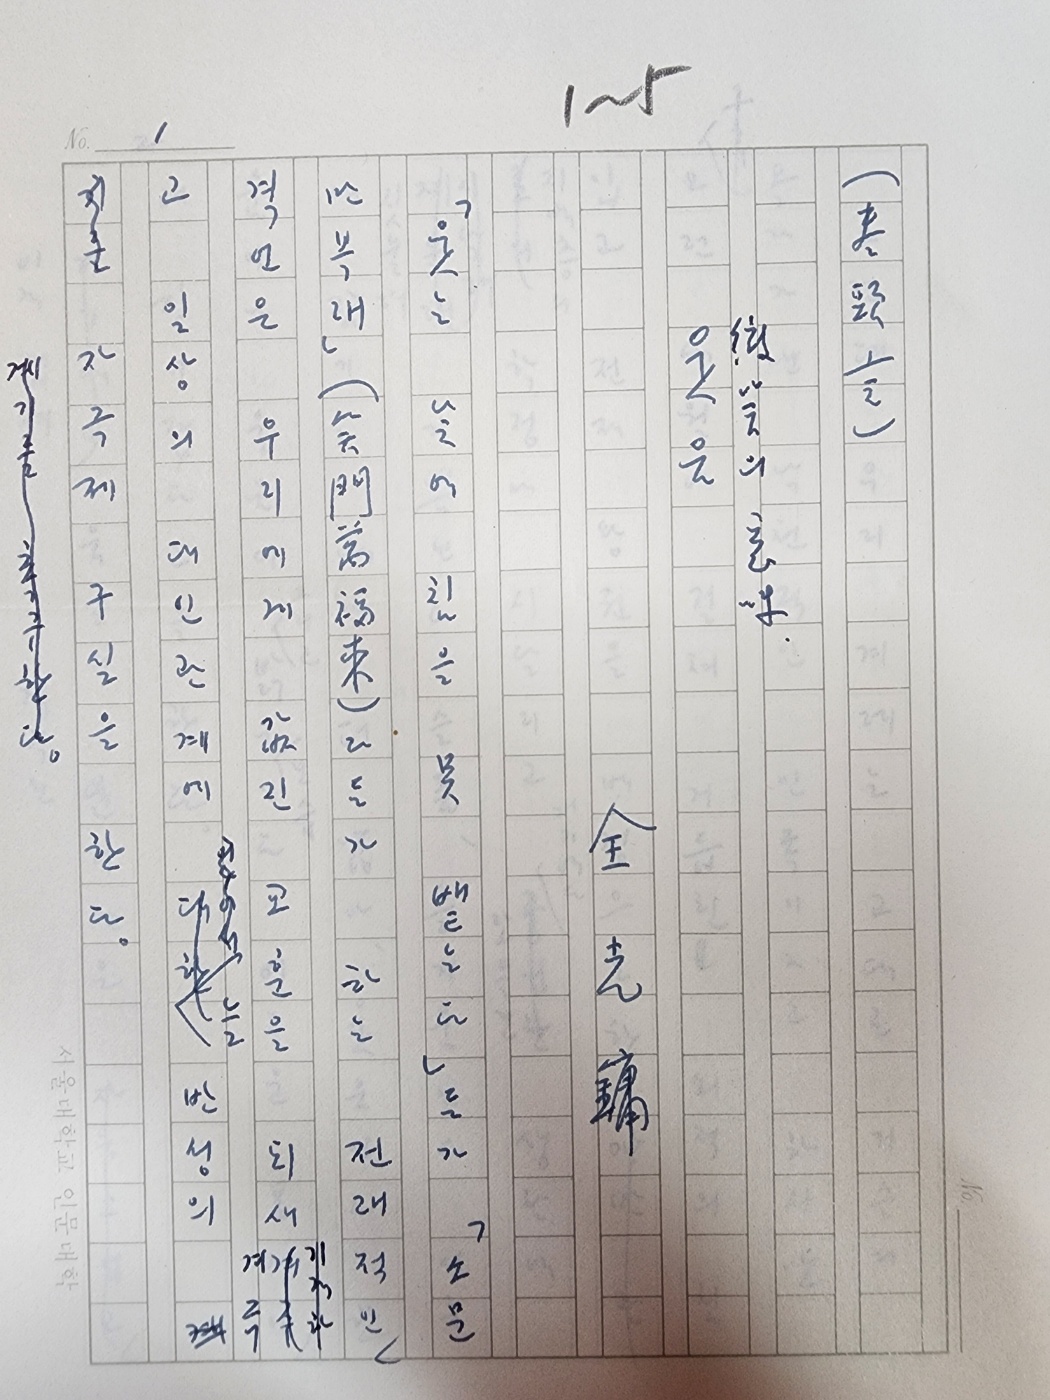 1~5
No. 1
(卷頭言)
微笑의 意味.
웃음
全光鏞
「웃는 낯에 침을 못 뱉는다」든가 「소문
만복래」(笑門萬福來)라든가 하는 전래적인
격언은 우리에게 값진 교훈을 되새겨주
고 일상의 대인관계에 늘 반성의
자극제 구실을 한다.
서울대학교 인문대학
No.